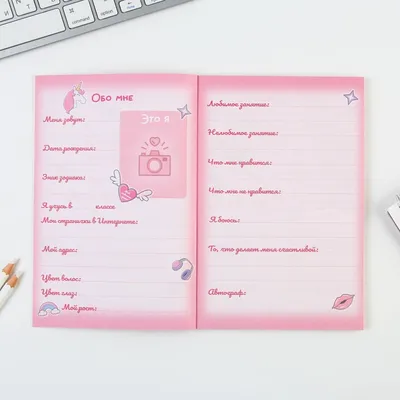 Обо мне
Меня зовут:
Это я
Дата рождения:
Знак зодиака:
Я учусь в классе
Мои странички в Интернете:
Мой адрес:
Цвет волос:
Цвет глаз:
Мой рост:
Любимое занятие:
Нелюбимое занятие:
Что мне нравится:
Что мне не нравится:
Я боюсь:
То, что делает меня счастливой:
Автограф: